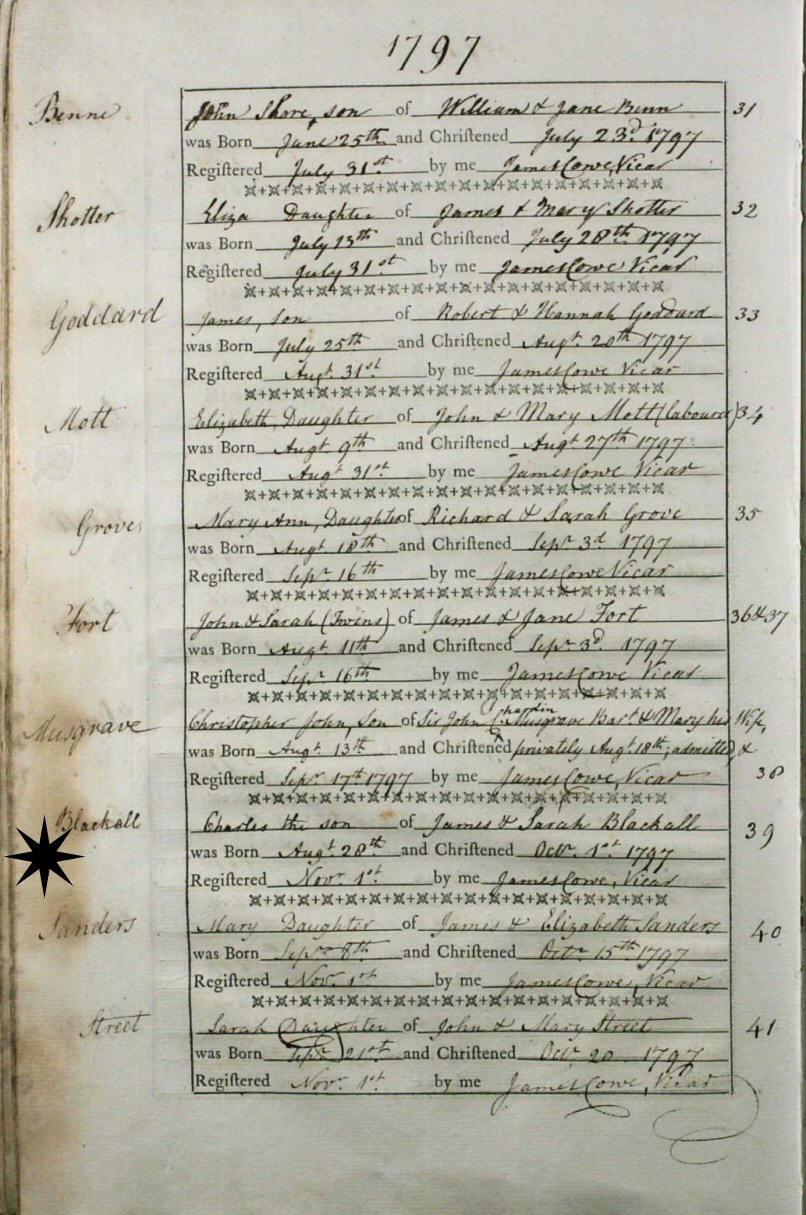 1797
Benne John Shore, son of William & Jane Benn 31
was Born June 25th and Chriſtened July 23d. 1797
Regiſtered July 31st by me James Cowe, Vicar
Shotter Eliza Daughter of James & Mary Shotter 32
was Born July 13th and Chriſtened July 28th. 1797
Regiſtered July 31st by me James Cowe Vicar
Goddard James, son of Robert & Hannah Goddard 33
was Born July 25th and Chriſtened Augt. 20th 1797
Regiſtered Augt. 31st by me James Cowe Vicar
Mott Elizabeth, Daughter of John & Mary Mott (labourer) 34
was Born Augt 9th and Chriſtened Augt 27th 1797
Regiſtered Augt 31st by me James Cowe Vicar
Grove Mary Ann, Daughter of Richard & Sarah Grove 35
was Born Augt 18th and Chriſtened Sepr 3d 1797
Regiſtered Sepr 16th by me James Cowe Vicar
Fort John & Sarah (Twins) of James & Jane Fort 36&37
was Born Augt 11th and Chriſtened Sepr 3d. 1797
Regiſtered Sepr 16th by me James Cowe Vicar
Musgrave Christopher John, Son of Sir John Chardin Musgrave Bart & Mary his Wife,
was Born Augt. 13th and Chriſtened privately Augt 18th; admitted, &
Regiſtered Sepr. 17th 1797 by me James Cowe, Vicar 38
Blackall Charles the son of James & Sarah Blackall 39
was Born Augt. 28th and Chriſtened Octr. 1st 1797
Regiſtered Novr. 1st. by me James Cowe, Vicar
Sanders Mary Daughter of James & Elizabeth Sanders 40
was Born Sepr 8th and Chriſtened Octr 15th 1797
Regiſtered Novr. 1st by me James Cowe, Vicar
Street Sarah Daughter of John & Mary Street 41
was Born Sepr. 21st and Chriſtened Octr 20 1797
Regiſtered Novr. 1st by me James Cowe, Vicar